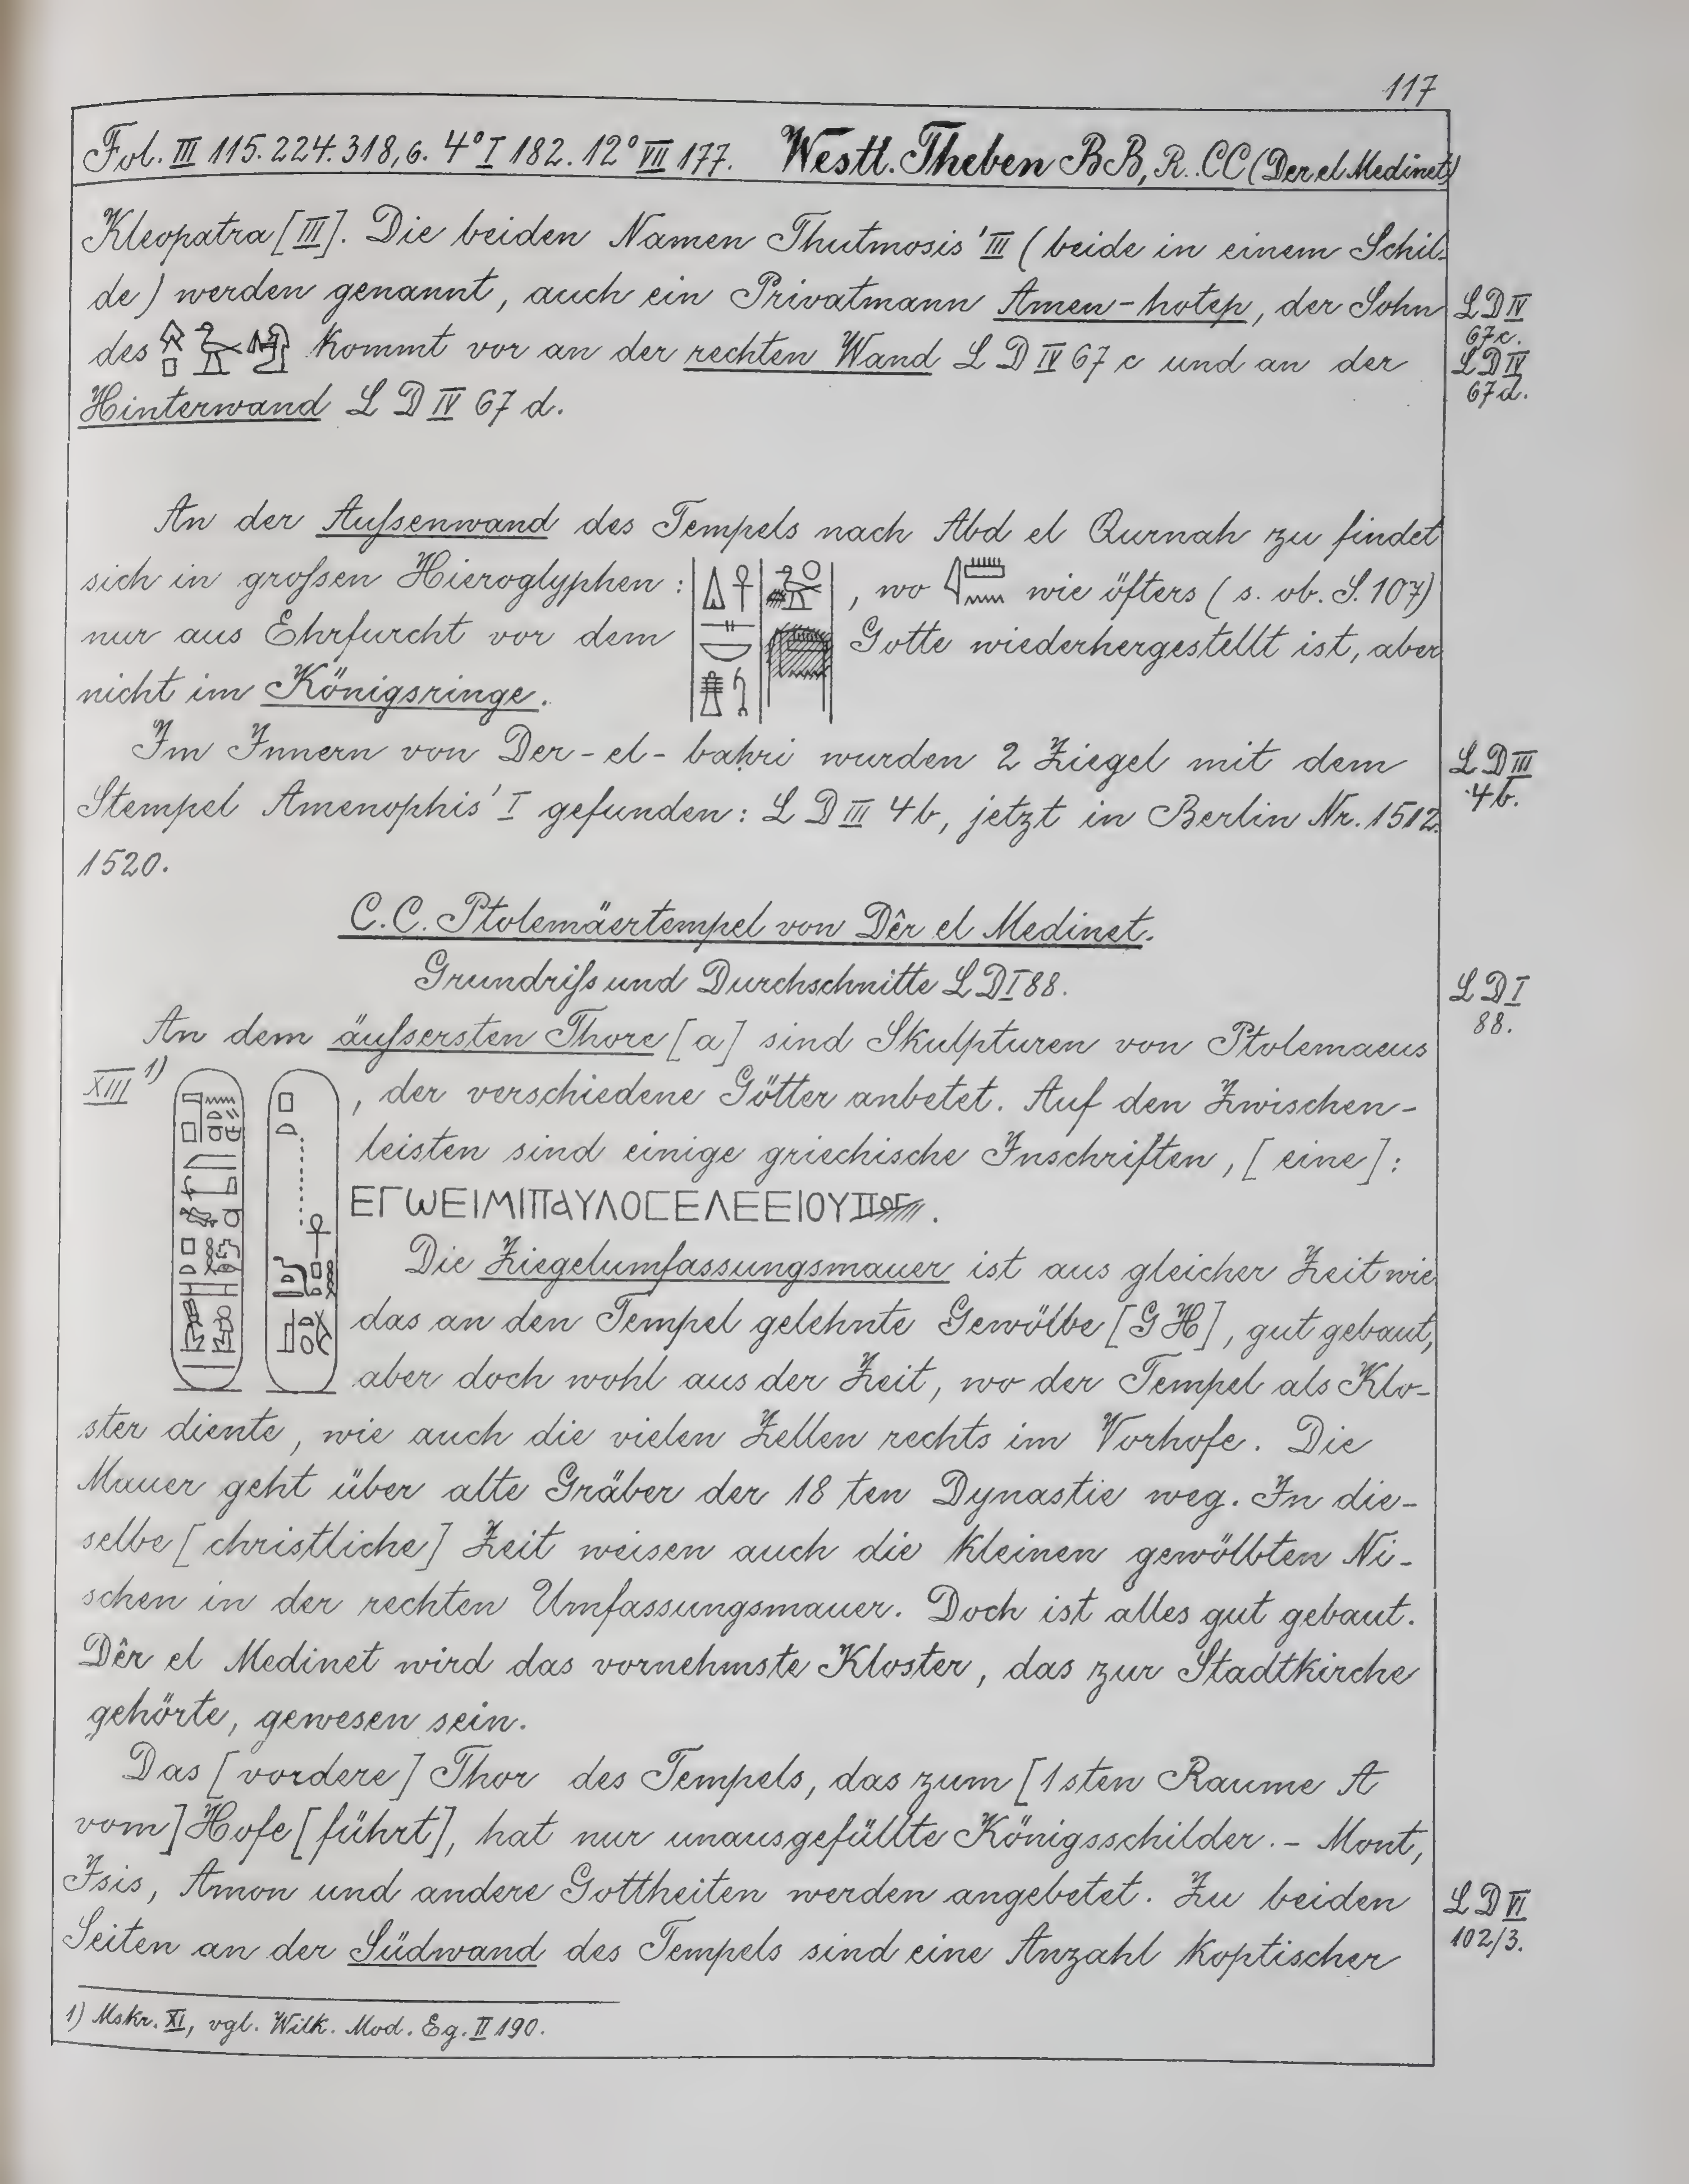 117
Fol. III 115. 224. 318, 6. 4° I 182. 12° VII 177. Westl. Theben BB, R. CC (Der el Medinet)
Kleopatra [III]. Die beiden Namen Thutmosis' III (beide in einem Schil-
de) werden genannt, auch ein Privatmann Amen-hotep, der Sohn
LD IV
67c.
des kommt vor an der rechten Wand LD IV 67 c und an der
LD IV
67d.
Hinterwand LD IV 67 d.
An der Aufsenwand des Tempels nach Abd el Qurnah zu findet
sich in grofsen Hieroglyphen: , wo wie öfters (s. ob. S. 107)
nur aus Ehrfurcht vor dem Gotte wiederhergestellt ist, aber
nicht im Königsringe.
Im Innern von Der-el-baḥri wurden 2 Ziegel mit dem
LD III
4b.
Stempel Amenophis' I gefunden: LD III 4b, jetzt in Berlin Nr. 1512.
1520.
C.C. Ptolemäertempel von Dêr el Medinet.
Grundrifs und Durchschnitte LD I 88.
LD I
88.
An dem äufsersten Thore [a] sind Skulpturen von Ptolemaeus
XIII 1) , der verschiedene Götter anbetet. Auf den Zwischen-
leisten sind einige griechische Inschriften, [eine]:
ΕΓΩΕΙΜΙΠΑΥΛΟϹΕΛΕΕΙΟΥ
Die Ziegelumfassungsmauer ist aus gleicher Zeit wie
das an den Tempel gelehnte Gewölbe [GH], gut gebaut,
aber doch wohl aus der Zeit, wo der Tempel als Klo-
ster diente, wie auch die vielen Zellen rechts im Vorhofe. Die
Mauer geht über alte Gräber der 18 ten Dynastie weg. In die-
selbe [christliche] Zeit weisen auch die kleinen gewölbten Ni-
schen in der rechten Umfassungsmauer. Doch ist alles gut gebaut.
Dêr el Medinet wird das vornehmste Kloster, das zur Stadtkirche
gehörte, gewesen sein.
Das [vordere] Thor des Tempels, das zum [1sten Raume A
vom] Hofe [führt], hat nur unausgefüllte Königsschilder. - Mont,
Isis, Amon und andere Gottheiten werden angebetet. Zu beiden
LD VI
102/3.
Seiten an der Südwand des Tempels sind eine Anzahl koptischer
1) Mskr. XI, vgl. Wilk. Mod. Eg. II 190.